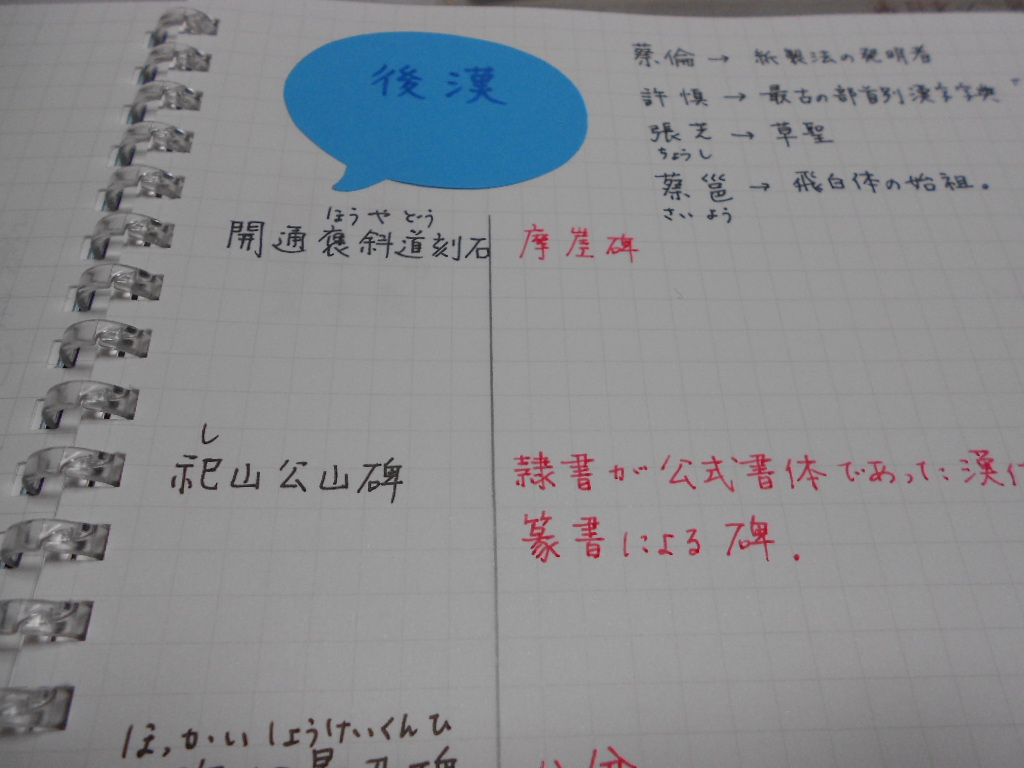 後漢
蔡倫→紙製法の発明者
許慎→最古の部首別漢字字典
張芝→草聖
ちょうし
蔡邕→飛白体の始祖。
さいよう
ほうやどう
開通褒斜道刻石 摩崖碑
し
祀山公山碑
隷書が公式書体であった漢代
篆書による碑.
ほっかいしょうけいくんひ